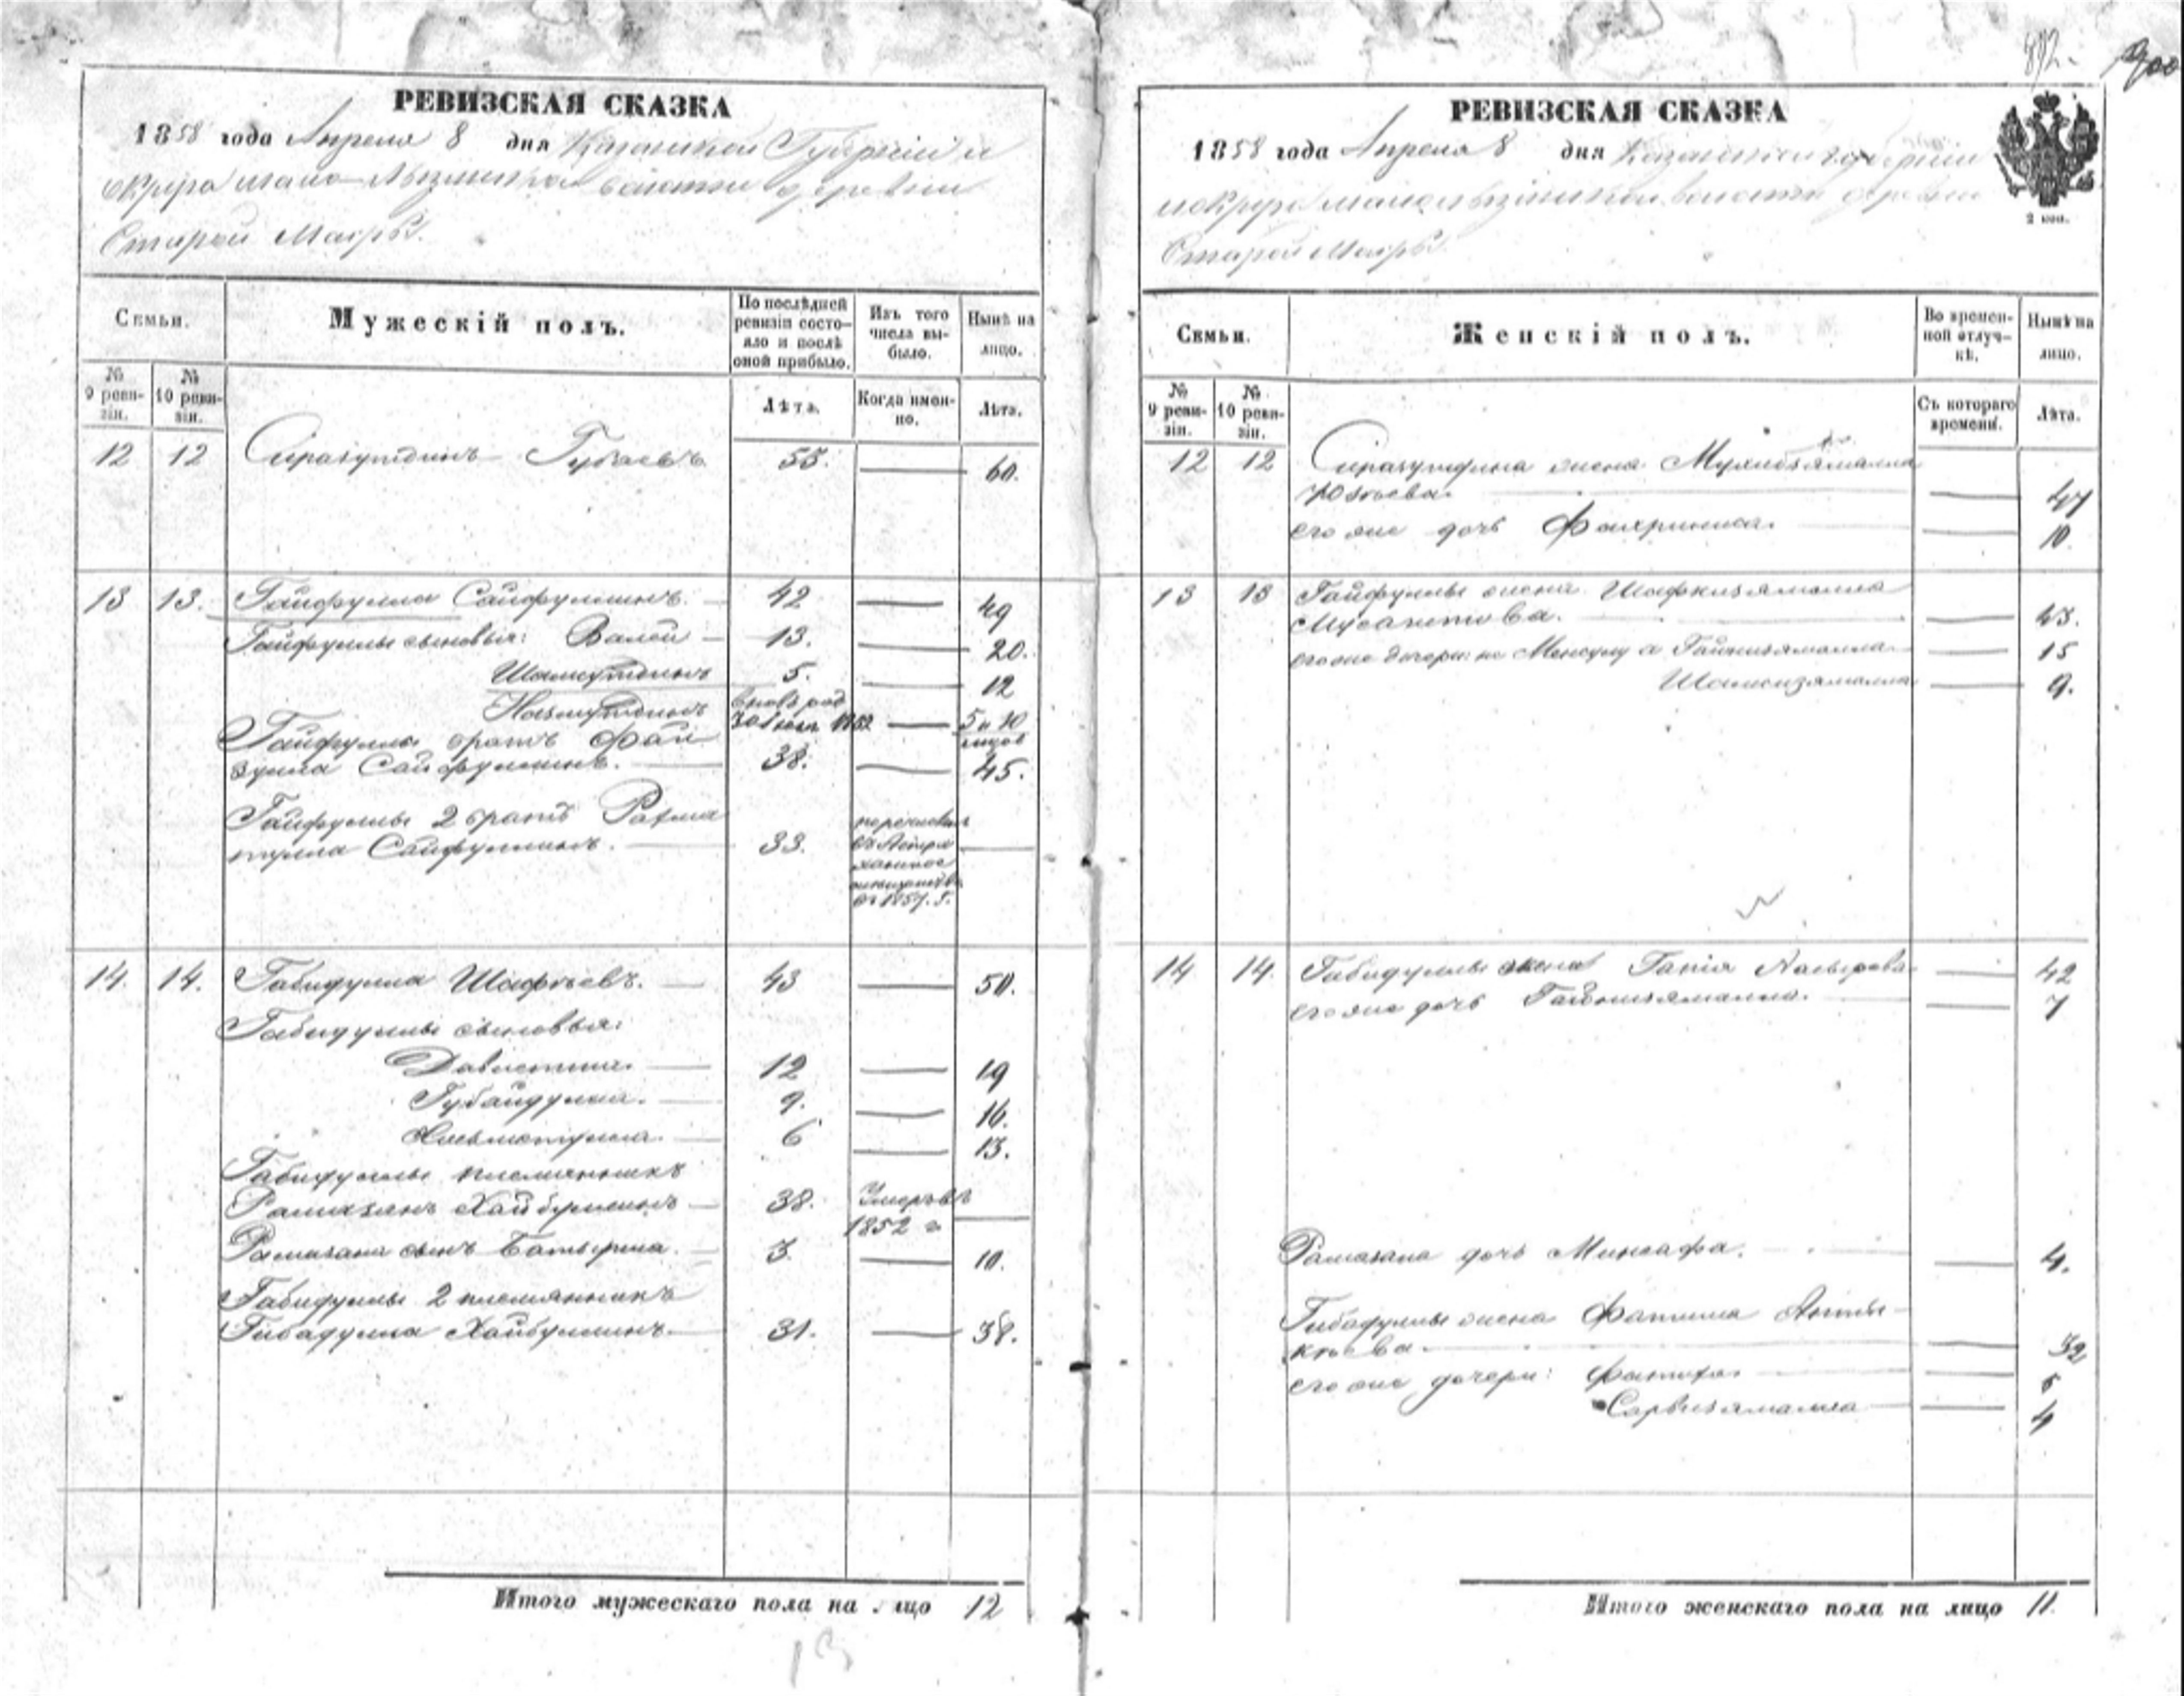 892.
900
РЕВИЗСКАЯ СКАЗКА
1858 года Апреля 8 дня Казанской Губернии и
округа волости деревни
Старой Масры.
Семьи.
Мужескій полъ.
По послѣдней ревизіи состояло и послѣ оной прибыло.
Изъ того числа выбыло.
Нынѣ на лицо.
№ 9 ревизіи.
№ 10 ревизіи.
Лѣта.
Когда именно.
Лѣта.
12 12 Сиразутдинъ Губаевъ 55. 60.
13 13. Гайфулла Сайфуллинъ. 42 49
Гайфуллы сыновья: Валей 13. 20.
Шамсутдинъ 5. 12
Назмутдинъ вновь род. 1852 5 и 10
Гайфуллы братъ Фай
зулла Сайфуллинъ. 38. 45.
Гайфуллы 2 братъ Рахма
тулла Сайфуллинъ. 33. въ 1857. г.
14. 14. Габидулла Шафѣевъ. 43 50.
Габидуллы сыновья:
Давлетша. 12 19
Губайдулла. 9. 16.
Нигматулла. 6 13.
Габидуллы племянникъ
Рамазанъ Хайбуллинъ 38. Умеръ въ
1852 г
Рамазана сынъ Батырша. 3. 10.
Габидуллы 2 племянникъ
Гибадулла Хайбуллинъ. 31. 38.
Итого мужескаго пола на лицо 12
13
РЕВИЗСКАЯ СКАЗКА
1858 года Апреля 8 дня Казанской губернии
и округа волости деревни
Старой Масры
2 коп.
Семьи.
Женскій полъ.
Во временной отлучкѣ.
Нынѣ на лицо.
№ 9 ревизіи.
№ 10 ревизіи.
Съ котораго времени.
Лѣта.
12 12 Сиразутдина жена
47
его же дочь Фахриниса. 10
13 13 Гайфуллы жена Шафкизямалла
Мусаметова. 43.
его же дочери: Гайнизямалла 15
Шамсизямалла 9.
14 14. Габидуллы жена Гапія 42
его же дочь Гайнизямалла. 7
Рамазана дочь Минсафа. 4.
Гибадуллы жена Фатима
кѣева. 32
его же дочери: Фатиха
Сарвизямалла 4
Итого женскаго пола на лицо 11.